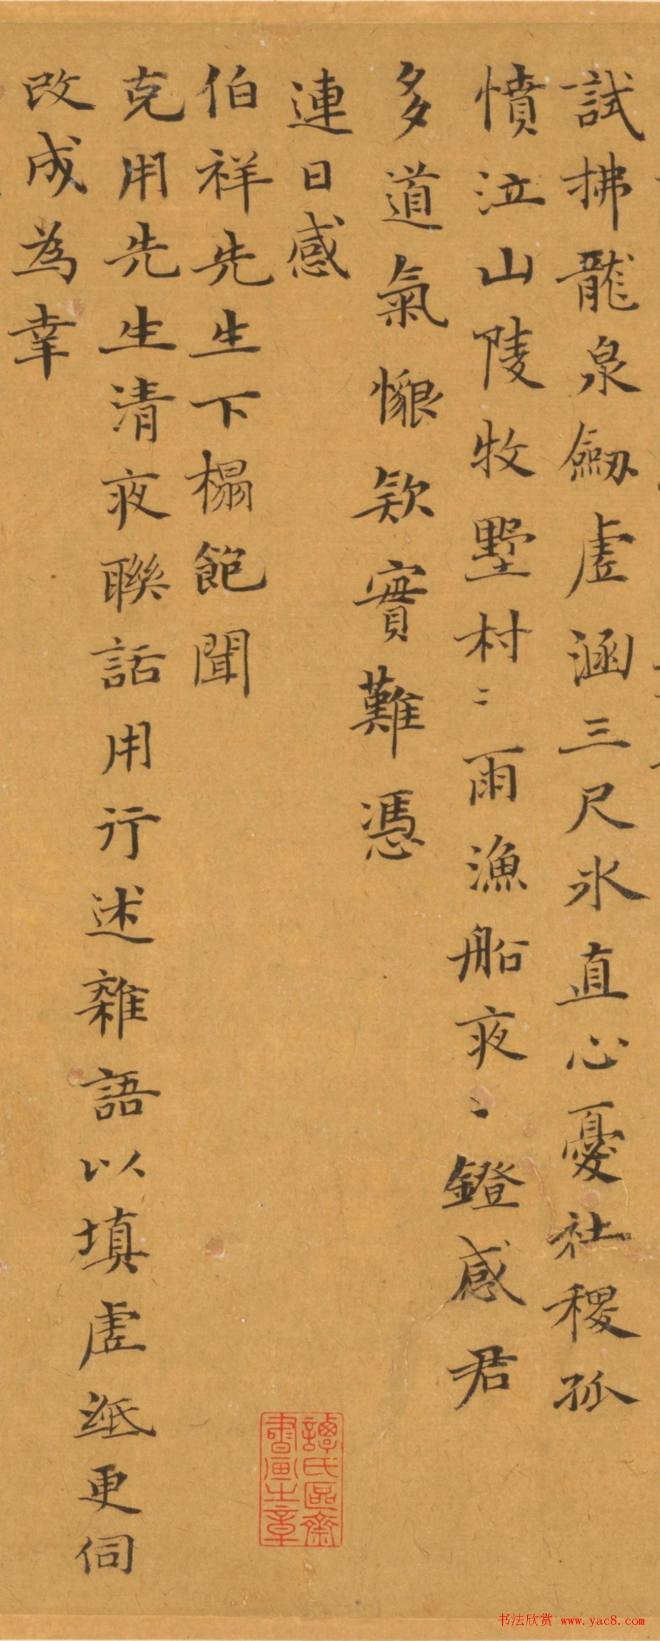 試拂龍泉劒虛涵三尺氷直心憂社稷孤
憤泣山陵牧墅村〻雨漁船夜〻鐙感君
多道氣懇欵實難憑
連日感
伯祥先生下榻飽聞
克用先生清夜聯話用行述雜語以填虛紙更伺
改成為幸
譚氏區齋
書畫之章
书法欣赏 www.yac8.com